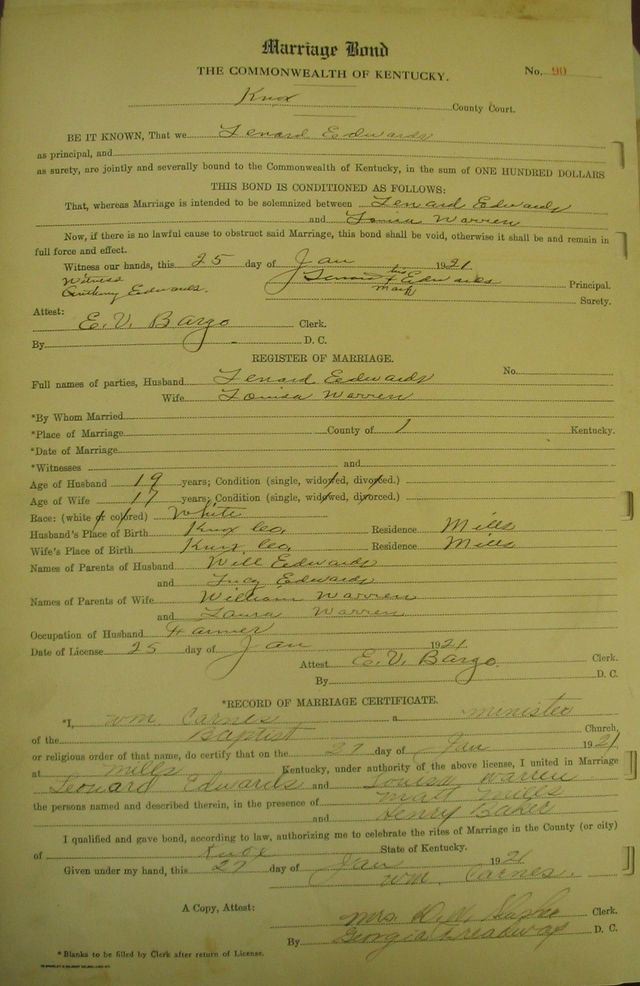 Marriage Bond
THE COMMONWEALTH OF KENTUCKY. No. 90
Knox County Court.
BE IT KNOWN, That we Lenard Edwards
as principal, and
as surety, are jointly and severally bound to the Commonwealth of Kentucky, in the sum of ONE HUNDRED DOLLARS
THIS BOND IS CONDITIONED AS FOLLOWS:
That, whereas Marriage is intended to be solemnized between Lenard Edwards
and Louisa Warren
Now, if there is no lawful cause to obstruct said Marriage, this bond shall be void, otherwise it shall be and remain in
full force and effect.
Witness our hands, this 25 day of Jan 1921
Witness Lenard his Edwards Principal.
Edwards. mark
Surety.
Attest:
E. V. Bargo Clerk.
By D. C.
REGISTER OF MARRIAGE.
Full names of parties, Husband Lenard Edwards No.
Wife Louisa Warren
*By Whom Married
*Place of Marriage County of 1 Kentucky.
*Date of Marriage
*Witnesses and
Age of Husband 19 years; Condition (single, widowed, divorced.)
Age of Wife 17 years; Condition (single, widowed, divorced.)
Race: (white or colored) White
Husband's Place of Birth Knox Co, Residence Mills
Wife's Place of Birth Knox Co, Residence Mills
Names of Parents of Husband Will Edwards
and Lucy Edwards
Names of Parents of Wife William Warren
and Laura Warren
Occupation of Husband Farmer
Date of License 25 day of Jan 1921
Attest E. V. Bargo Clerk.
By D. C.
*RECORD OF MARRIAGE CERTIFICATE.
*I, Wm. Carnes a minister
of the Baptist Church,
or religious order of that name, do certify that on the 27 day of Jan 1921
at Mills Kentucky, under authority of the above license, I united in Marriage
Leonard Edwards and Louisa Warren
the persons named and described therein, in the presence of Matt Mills
and Henry Baker
I qualified and gave bond, according to law, authorizing me to celebrate the rites of Marriage in the County (or city)
of Knox State of Kentucky.
Given under my hand, this 27 day of Jan 1921
Wm. Carnes.
A Copy, Attest: Mrs. Clerk.
By Georgia Treadway D. C.
*Blanks to be filled by Clerk after return of License.